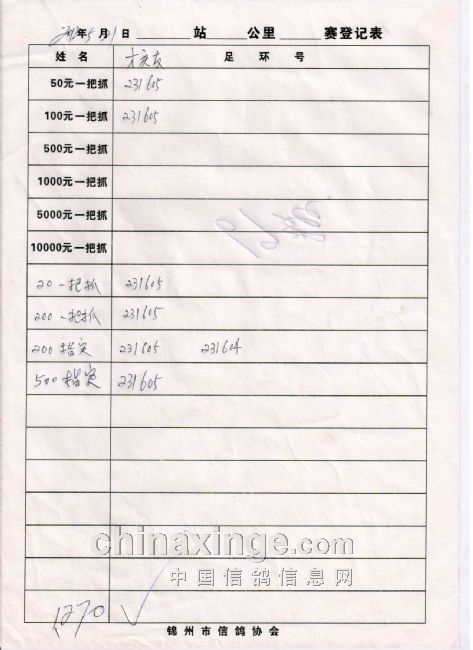 年5月1日 站 公里 赛登记表
姓名 足环号
50元一把抓 231605
100元一把抓 231605
500元一把抓
1000元一把抓
5000元一把抓
10000元一把抓
20一把抓 231605
200一把抓 231605
200指定 231605 231604
500指定 231605
chinaxinge.com
中国信鸽信息网
1270 √
锦州市信鸽协会